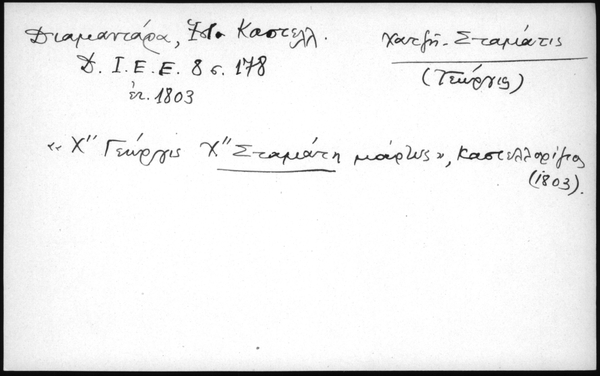 Διαμαντάρα, Ἱστ. Καστελλ.
Δ. Ι. Ε. Ε. 8 σ. 178
ἐτ. 1803
Χατζῆ-Σταμάτις
(Γεώργις)
«Χ" Γεώργις Χ" Σταμάτη μάρτυς», Καστελλορίζιος
(1803).